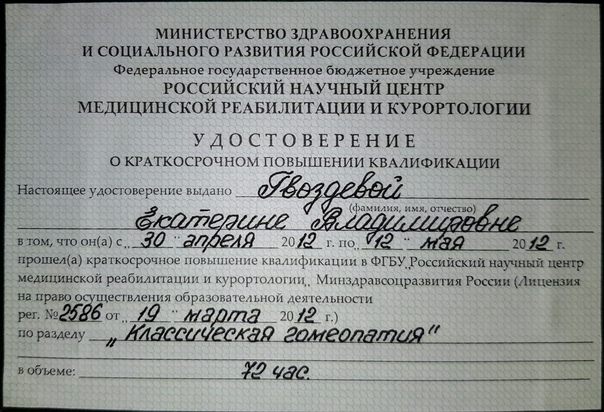 МИНИСТЕРСТВО ЗДРАВООХРАНЕНИЯ
И СОЦИАЛЬНОГО РАЗВИТИЯ РОССИЙСКОЙ ФЕДЕРАЦИИ
Федеральное государственное бюджетное учреждение
РОССИЙСКИЙ НАУЧНЫЙ ЦЕНТР
МЕДИЦИНСКОЙ РЕАБИЛИТАЦИИ И КУРОРТОЛОГИИ
УДОСТОВЕРЕНИЕ
О КРАТКОСРОЧНОМ ПОВЫШЕНИИ КВАЛИФИКАЦИИ
Настоящее удостоверение выдано Гвоздевой
(фамилия, имя, отчество)
Екатерине Владимировне
в том, что он(а) с „30" апреля 2012 г. по „12" мая 2012 г.
прошел(а) краткосрочное повышение квалификации в ФГБУ „Российский научный центр
медицинской реабилитации и курортологии„ Минздравсоцразвития России (Лицензия
на право осуществления образовательной деятельности
рег. №2586 от „19" марта 2012 г.)
по разделу „Классическая гомеопатия"
в объеме: 72 час.